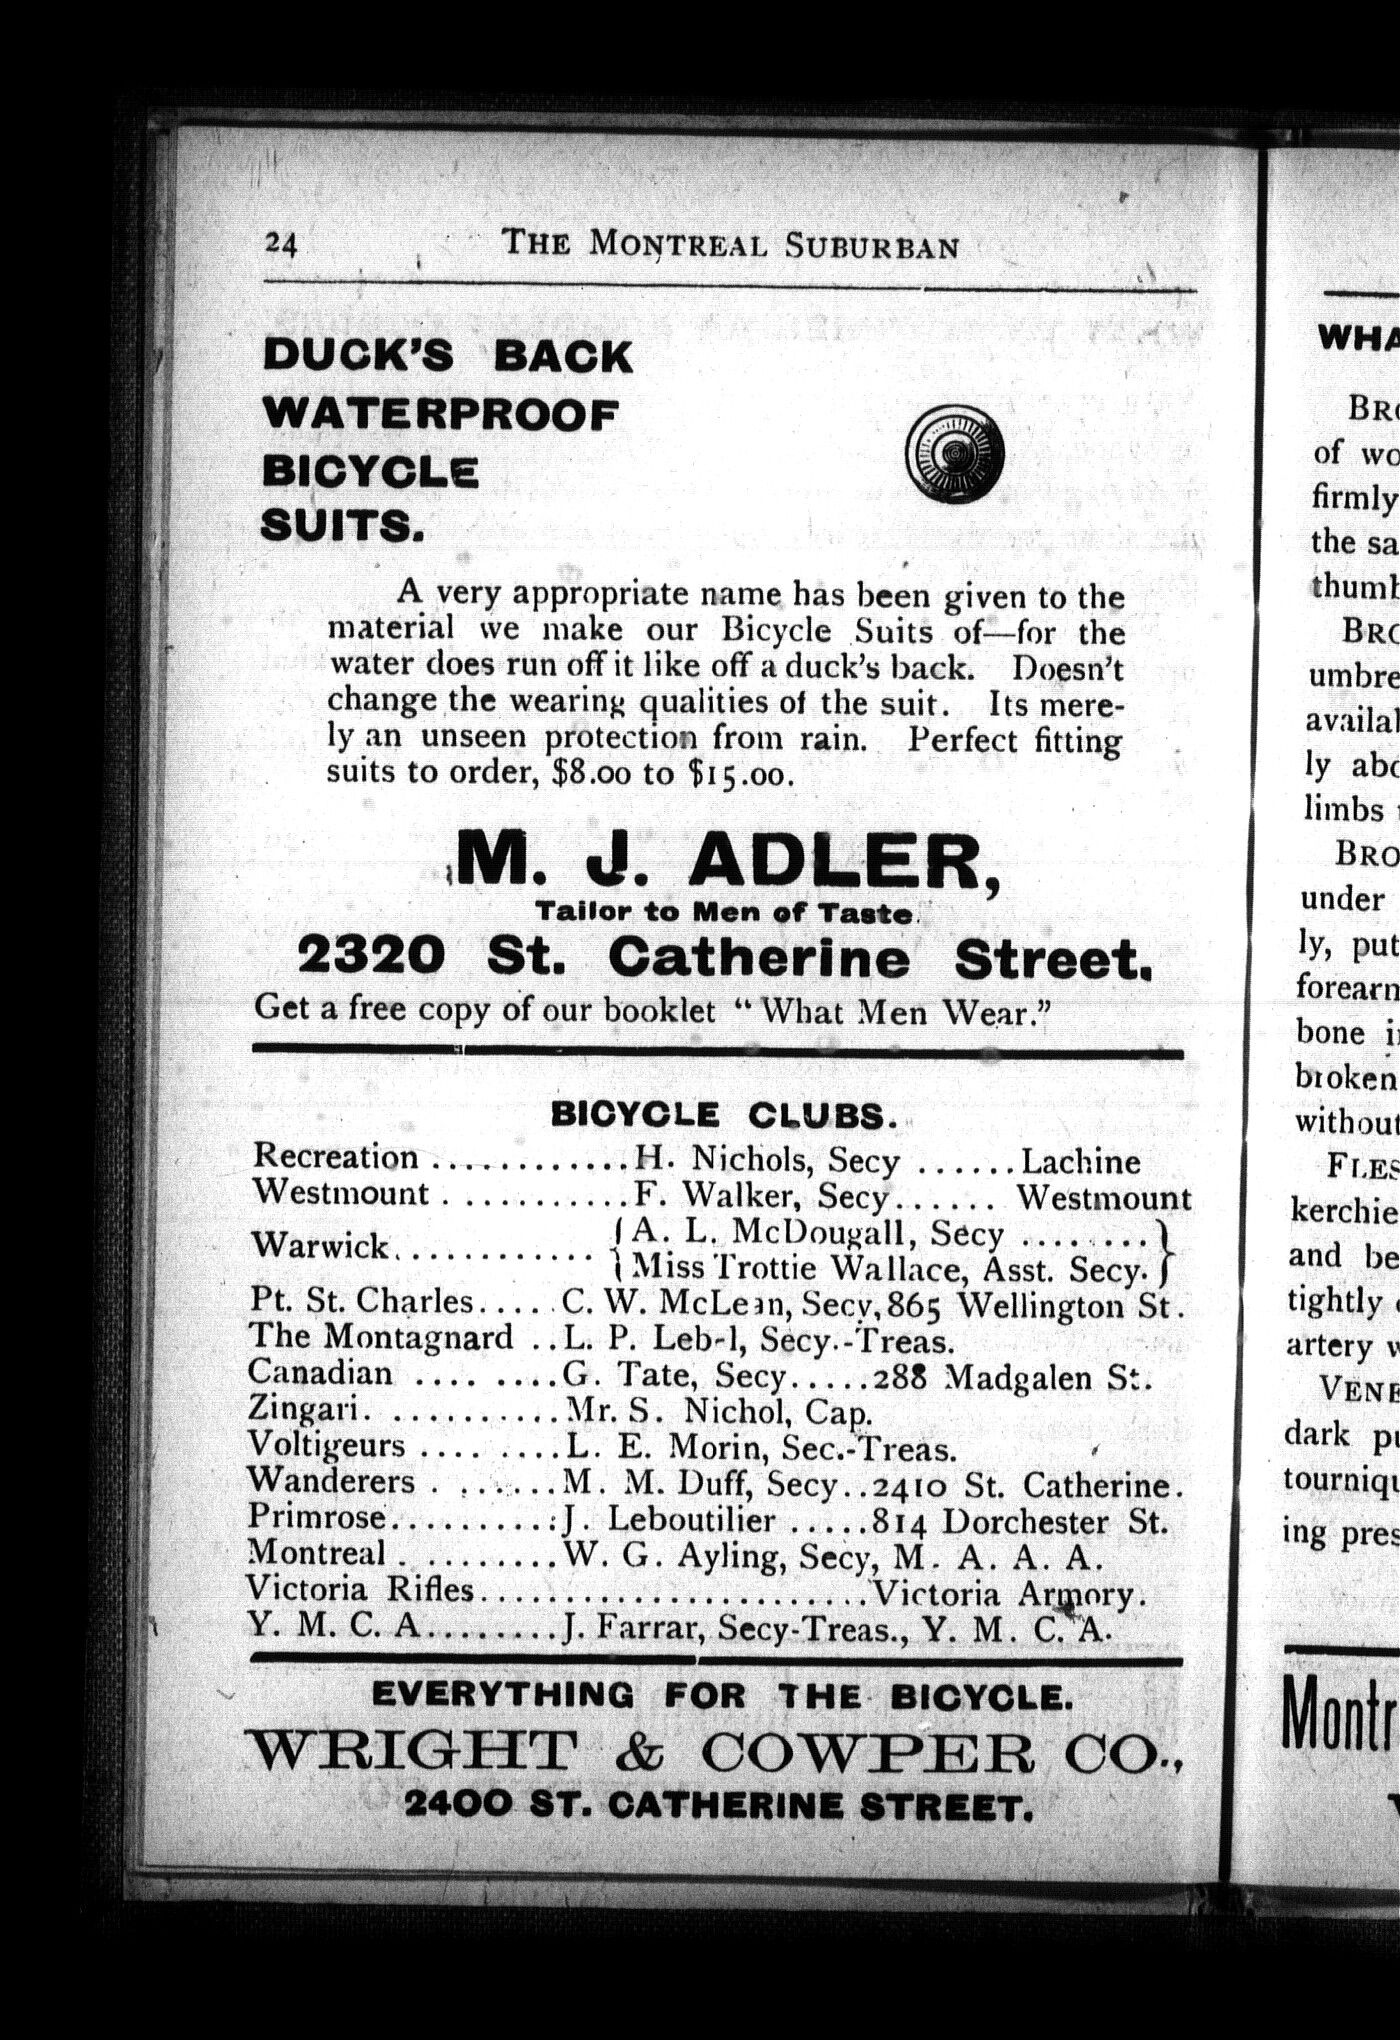 24 THE MONTREAL SUBURBAN
DUCK'S BACK
WATERPROOF
BICYCLE
SUITS.
A very appropriate name has been given to the
material we make our Bicycle Suits of—for the
water does run off it like off a duck's back. Doesn't
change the wearing qualities of the suit. Its mere-
ly an unseen protection from rain. Perfect fitting
suits to order, $8.00 to $15.00.
M. J. ADLER,
Tailor to Men of Taste.
2320 St. Catherine Street.
Get a free copy of our booklet "What Men Wear."
BICYCLE CLUBS.
Recreation ............H. Nichols, Secy ......Lachine
Westmount ............F. Walker, Secy...... Westmount
Warwick............. { A. L. McDougall, Secy ........ }
{ Miss Trottie Wallace, Asst. Secy. }
Pt. St. Charles..... C. W. McLean, Secy, 865 Wellington St.
The Montagnard ..L. P. Secy.-Treas.
Canadian .... ....G. Tate, Secy.....288 Madgalen St.
Zingari. ..........Mr. S. Nichol, Cap.
Voltigeurs .........L. E. Morin, Sec.-Treas.
Wanderers . ......M. M. Duff, Secy..2410 St. Catherine.
Primrose..........J. Leboutilier .....814 Dorchester St.
Montreal . ........W. G. Ayling, Secy, M. A. A. A.
Victoria Rifles.......................Victoria Armory.
Y. M. C. A........J. Farrar, Secy-Treas., Y. M. C. A.
EVERYTHING FOR THE BICYCLE.
WRIGHT & COWPER CO.,
2400 ST. CATHERINE STREET.
WHA
BRO
of wo
firmly
the sa
thumb
BRO
umbre
availal
ly abo
limbs
BRO
under
ly, put
forearm
bone i
broken
without
FLES
kerchie
and be
tightly
artery w
VENE
dark pu
tourniqu
ing pres
Montr